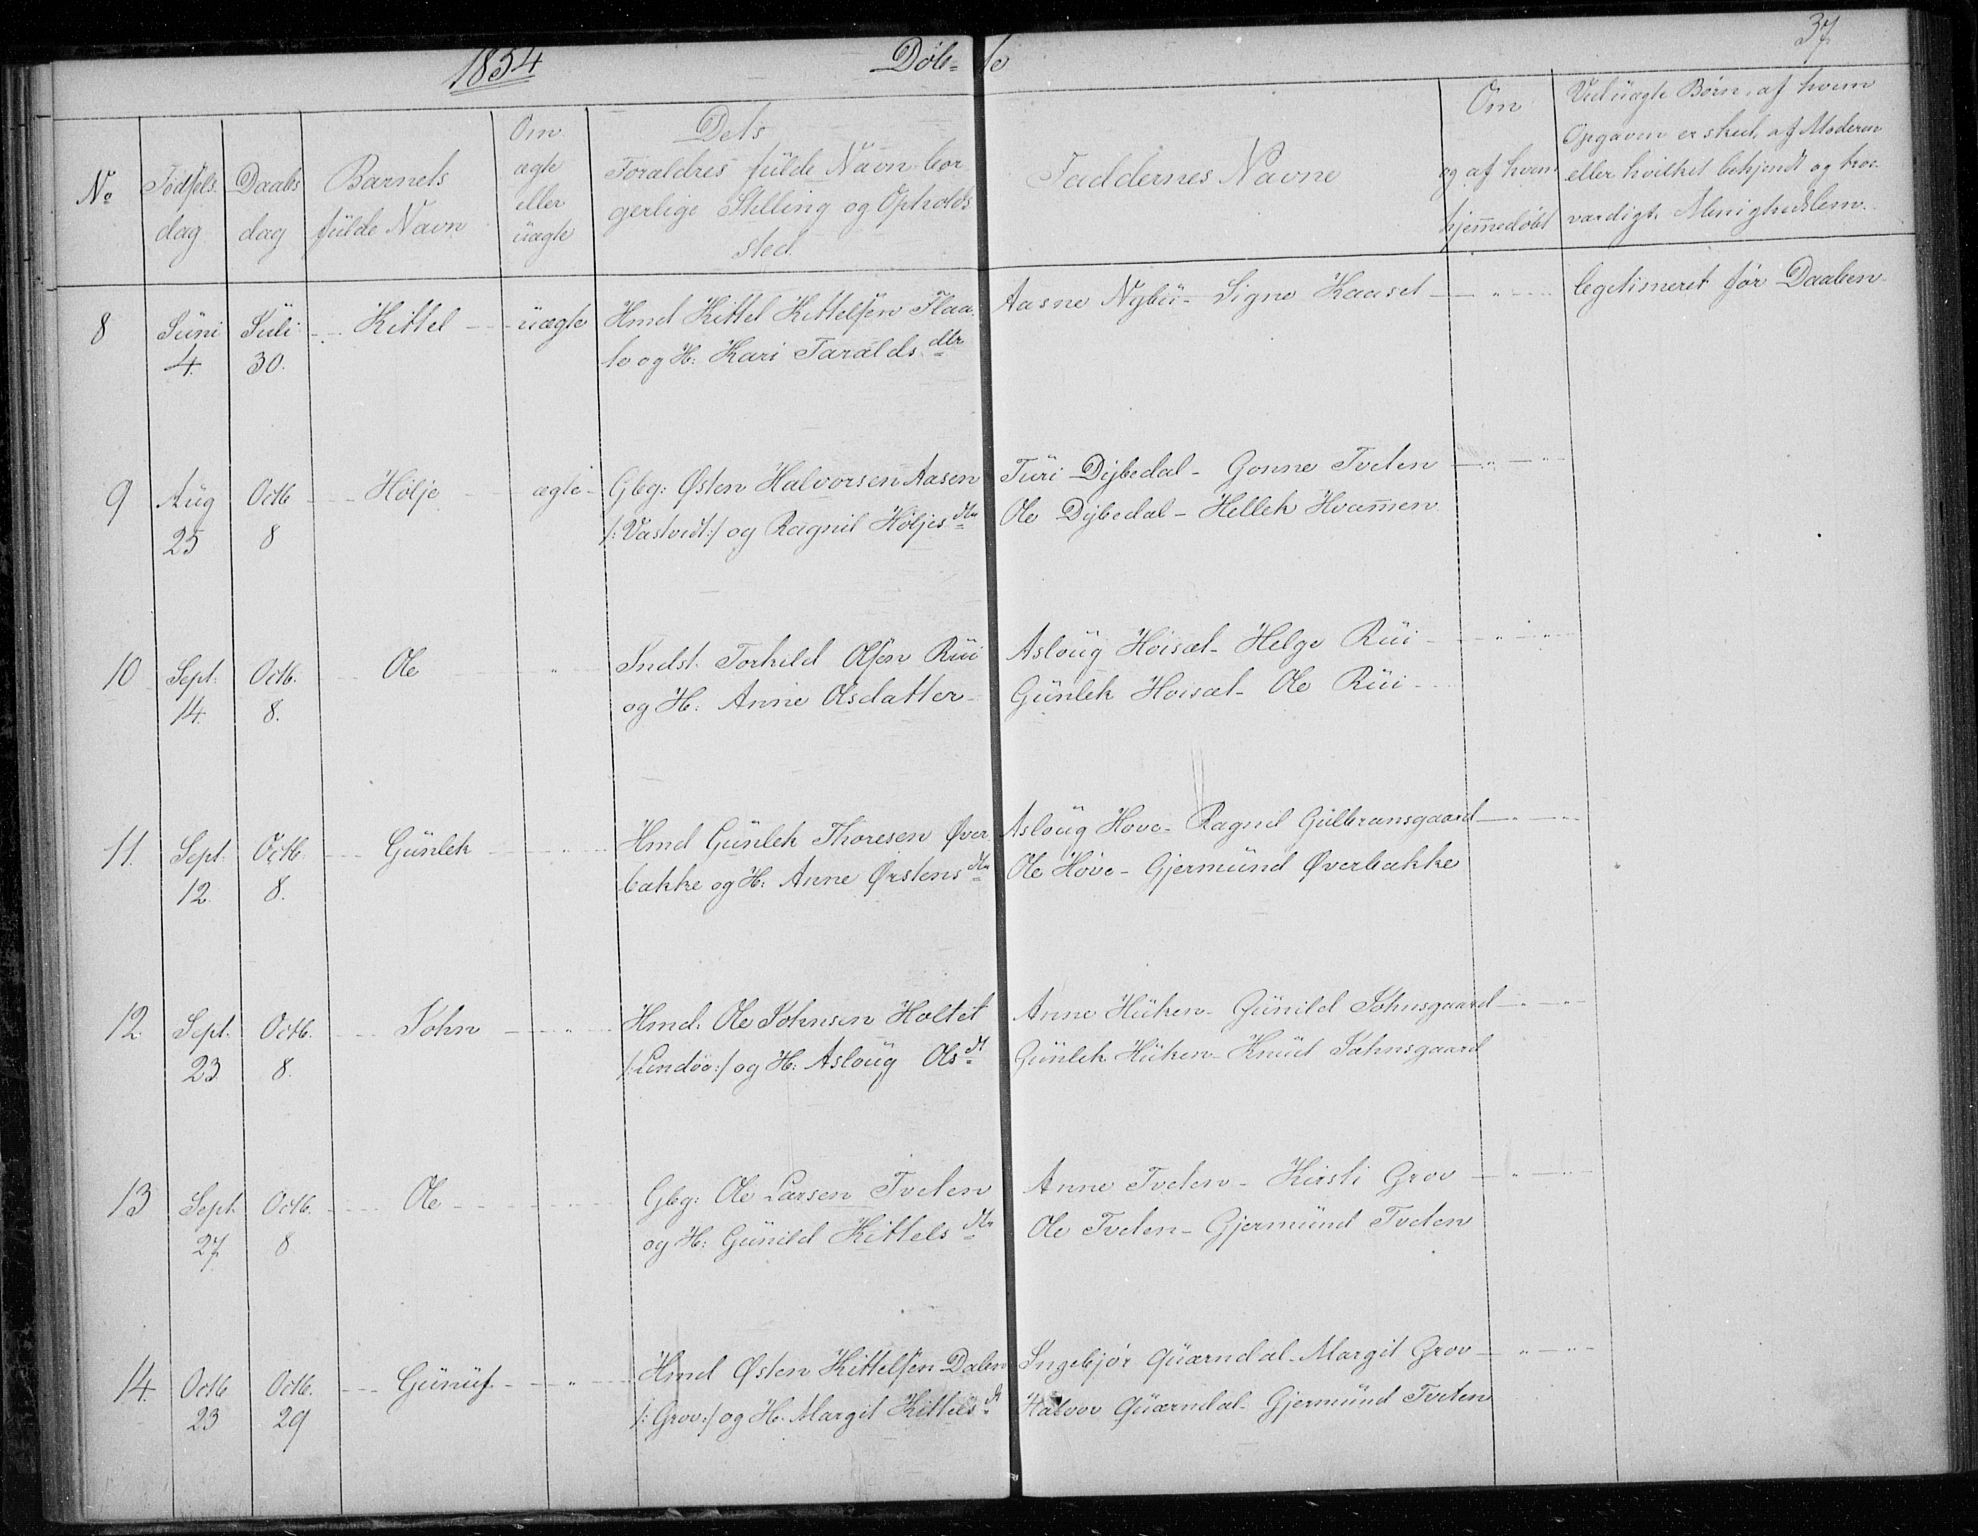 1854 Døb- te 37
No Födsels dag Daabs dag Barnets fulde Navn Om ægte eller uægte Dets Forældres fulde Navn bor gerlige Stilling og Opholds sted. Faddernes Navne Om og af hvem hjemedøbt Ved uægte Børn, af hvem Opgaven er skeet, af Moderen eller hvilket bekjendt og troe værdigt Menighedslem.
8 Juni Juli Kittel uægte Hmd Kittel Kittelsen Flaa Aasne Nybu - Signe Kaaset legitimeret før Daaben
4. 30. te og H: Kari Taraldsdtr
9 Aug Octb Hølje ægte Gbg: Østen Halvorsen Aasen Turi Dybedal - Gonne Tveten
25 8 /: Vastveit:/ og Ragnil Høljesdtr Ole Dybedal - Hellek Hvamen
10 Sept. Octb. Ole " Indst. Torkild Olsen Rui Asloug Høisæt - Helge Rui
14. 8. og H: Anne Olsdatter Gunlek Høisæt - Ole Rui
11. Sept. Octb. Gunlek " Hmd Gunlek Thoresen Øver Asloug Hove - Ragnil Gulbransgaard
12. 8. bække og H: Anne Ørstensdtr Ole Hove - Gjermund Øverbække
12. Sept. Octb. John " Hmd. Ole Johnsen Holtet Anne Huken - Gunild Johnsgaard
23 8. /: Lendøe:/ og H: Asloug Olsdt Gunlek Huken - Knud Johnsgaard
13 Sept. Octb. Ole Gbg: Ole Larsen Tveten Anne Tveten - Kirsti Grov
27 8 og H: Gunild Kittelsdtr Ole Tveten - Gjermund Tveten
14. Octb Octb. Gunuf " Hmd Østen Kittelsen Dalen Ingebjør Quærndal - Margit Grov
23 29 /: Grov:/ og H: Margit Kittelsdt Halvor Quærndal - Gjermund Tveten